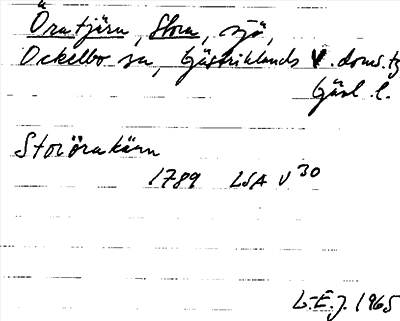 Öratjärn, Stora, sjö,
Ockelbo sn, Gästriklands V. doms.tg
Gävl. l.
Storörakärn
1789 LSA V 30
L.E.J. 1965